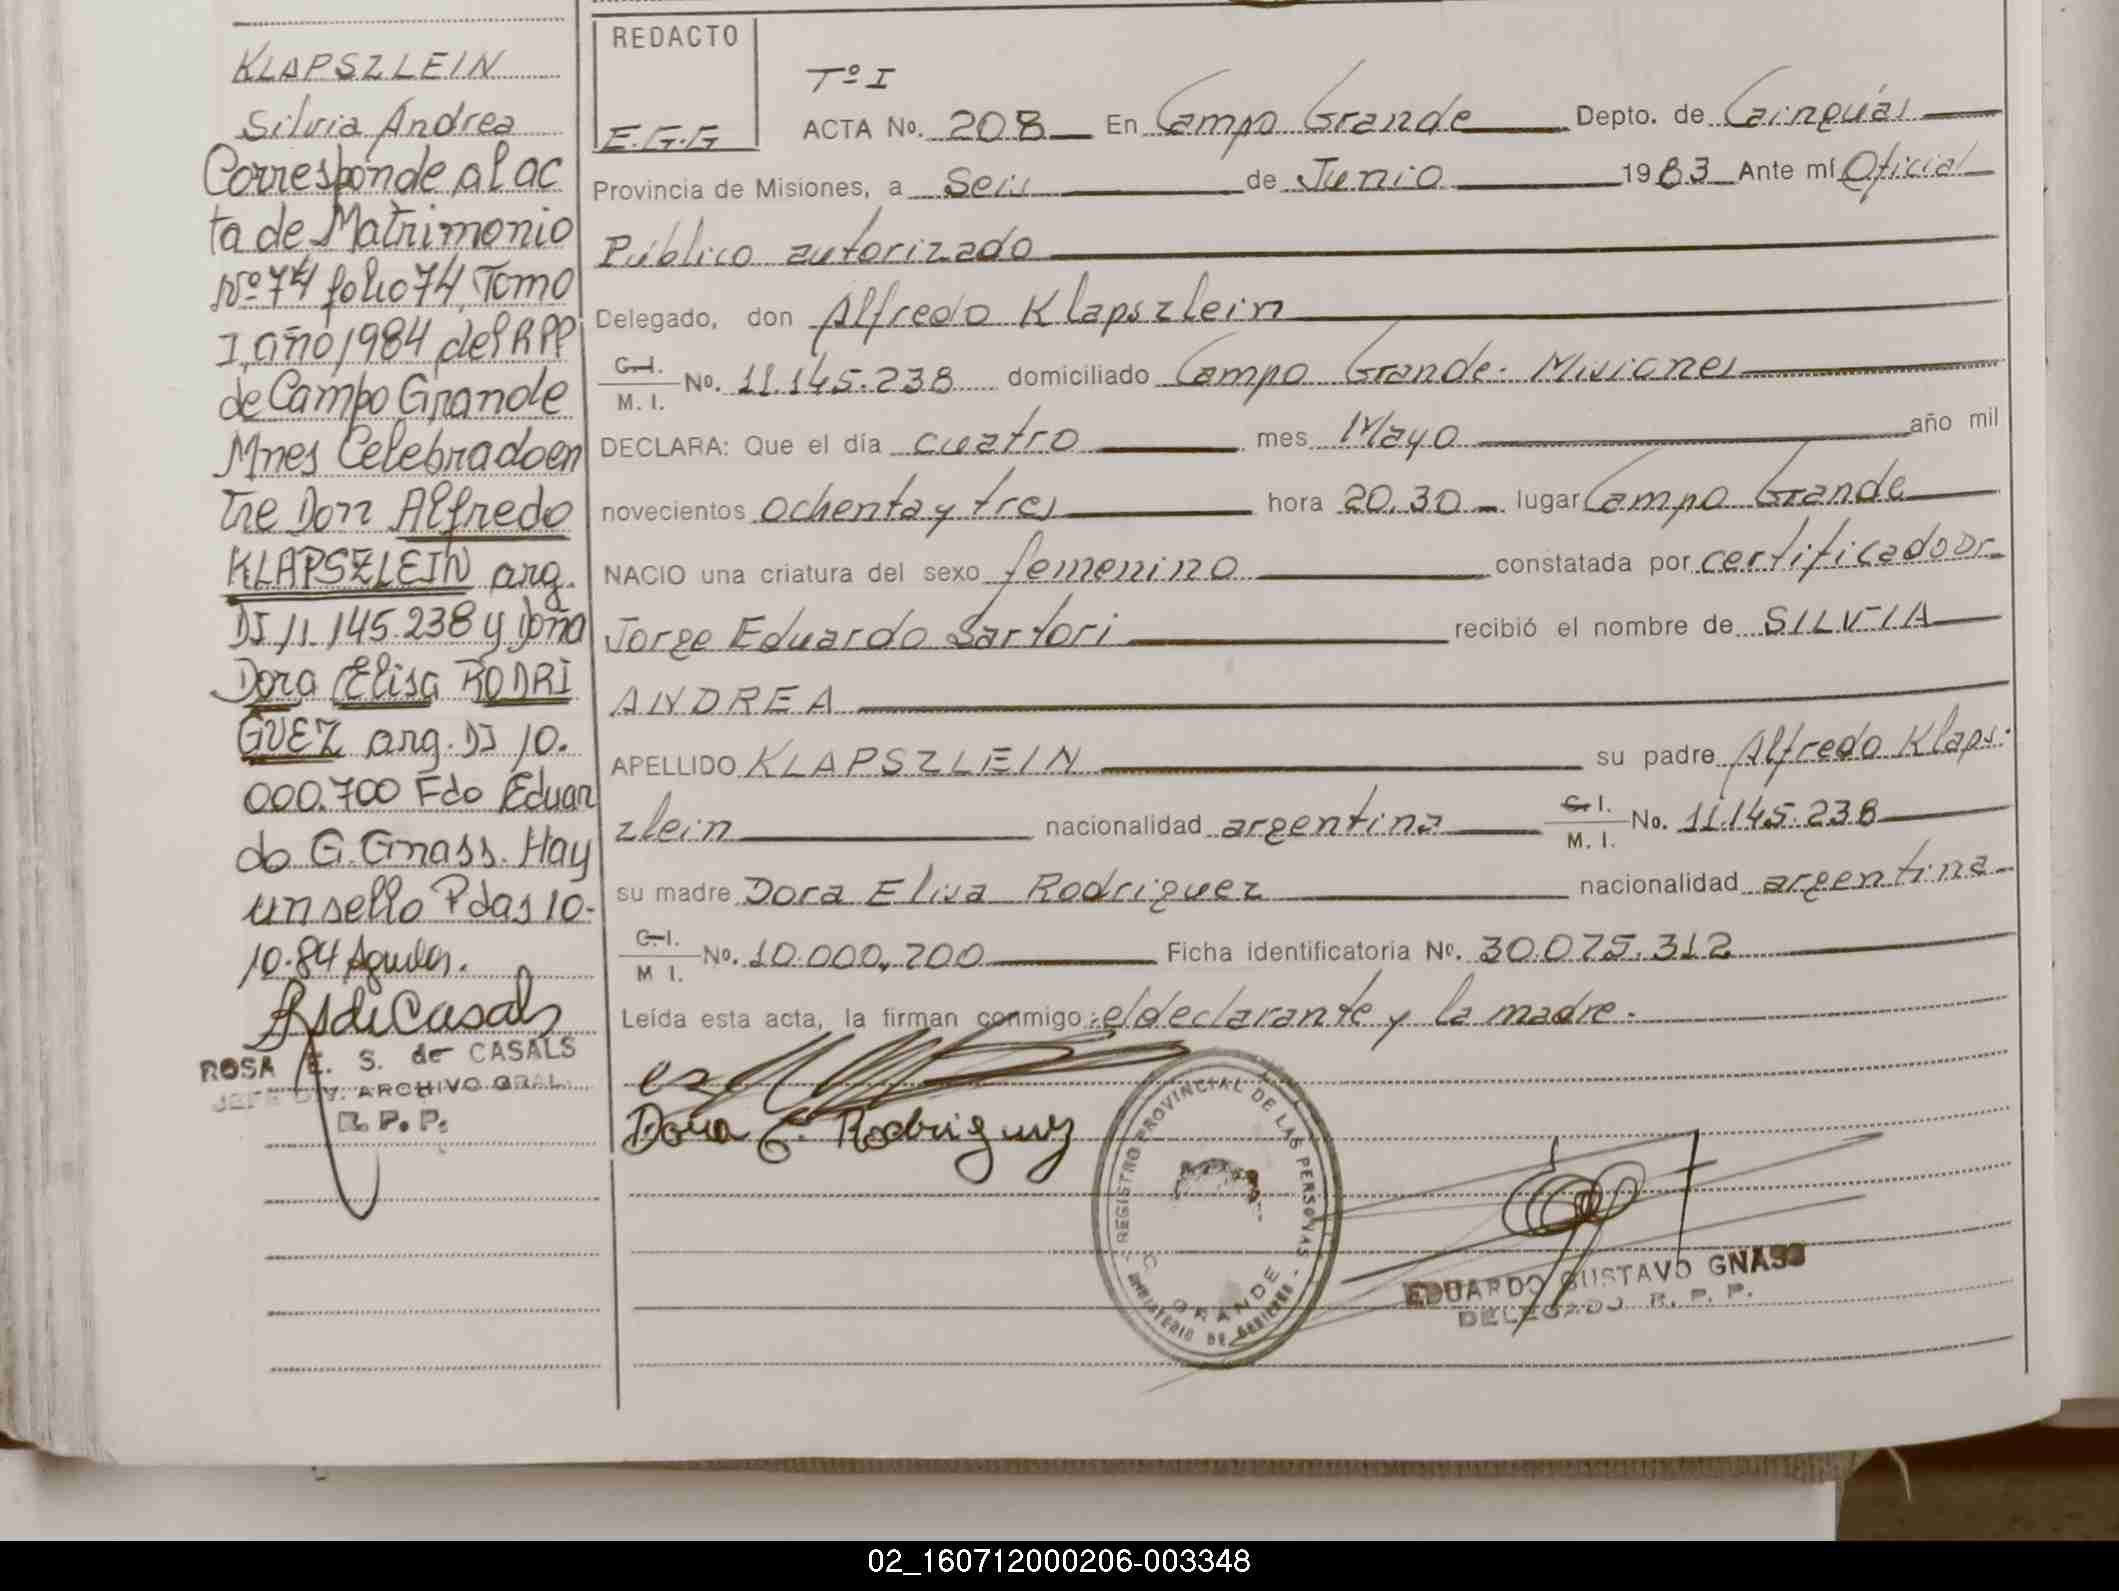 KLAPSZLEIN
Silvia Andrea
Corresponde al ac
ta de Matrimonio
Nº 74 folio 74, Tomo
I, año 1984 del RPP
de Campo Grande
Mnes Celebrado en
tre Don Alfredo
KLAPSZLEIN arg.
DI 11.145.238 y doña
Dora Elisa RODRI
GUEZ arg. DI 10.
000.700 Fdo Eduar
do G. Gnass. Hay
un sello Pdas 10-
10-84
ROSA E. S. de CASALS
JEFE DIV. ARCHIVO GRAL.
R. P. P.
REDACTO
E.G.G
Tº I
ACTA No. 208 En Campo Grande Depto. de Cainguás
Provincia de Misiones, a Seis de Junio 1983 Ante mí Oficial
Público autorizado
Delegado, don Alfredo Klapszlein
C.I. / M. I. No. 11.145.238 domiciliado Campo Grande. Misiones
DECLARA: Que el día cuatro mes Mayo año mil
novecientos ochenta y tres hora 20.30 lugar Campo Grande
NACIO una criatura del sexo femenino constatada por certificado Dr.
Jorge Eduardo Sartori recibió el nombre de SILVIA
ANDREA
APELLIDO KLAPSZLEIN su padre Alfredo Klaps-
zlein nacionalidad argentina C.I. / M. I. No. 11.145.238
su madre Dora Elisa Rodriguez nacionalidad argentina
C.I. / M I. No. 10.000.700 Ficha identificatoria No. 30.075.312
Leída esta acta, la firman conmigo: el declarante y la madre.
Dora E. Rodriguez
REGISTRO PROVINCIAL DE LAS PERSONAS
C. GRANDE
MINISTERIO DE GOBIERNO
EDUARDO GUSTAVO GNASS
DELEGADO R. P. P.
02_160712000206-003348